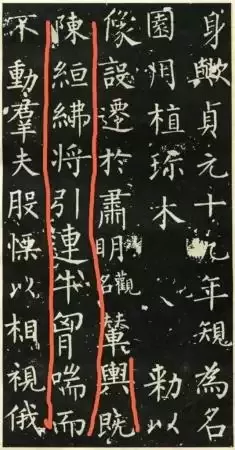 身歟貞元十九年規為名
園用植珎木敕以
像設遷於肅明觀名輦輿既
陳絙紼将引連牛胷喘而
不動羣夫股慄以相視俄